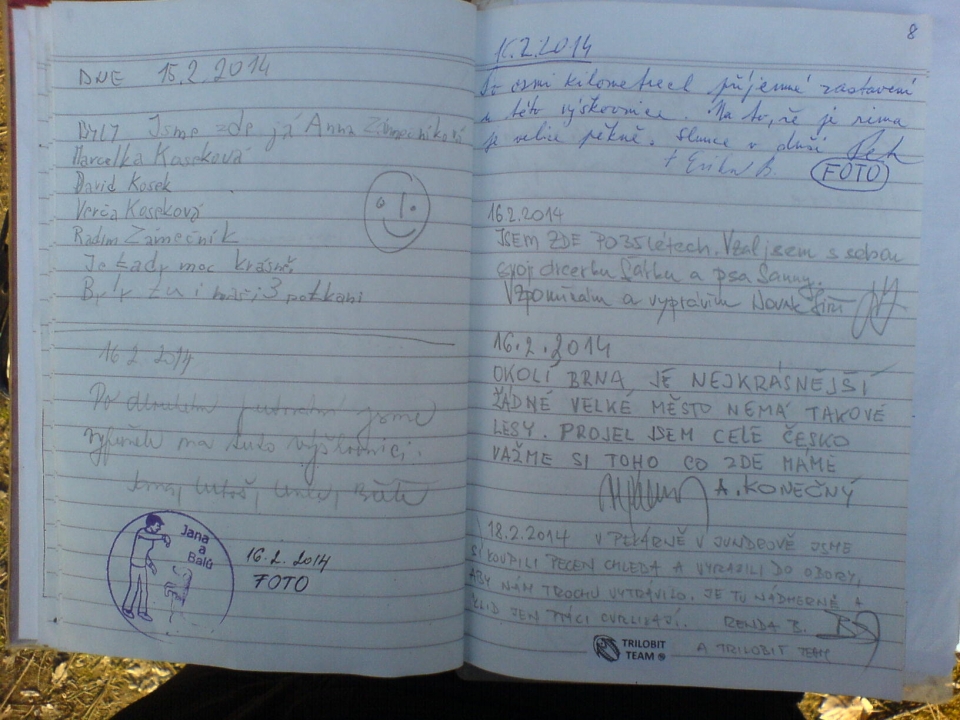 DNE 15.2.2014
BYLY Jsme zde já Anna Zámečníková
Marcelka Koseková
David Kosek
Verča Koseková
Radim Zámečník
Je tady moc krásně.
Byly tu i naši 3 potkani
16 2 2014
Po dlouhém putování jsme
na tuto výškovnici.
Jana a Balů
16.2.2014
FOTO
8
16.2.2014
Po osmi kilometrech příjemné zastavení
u této výškovnice. Na to, že je zima
je velice pěkně. Slunce v duši Petr
+ Erika B. FOTO
16.2.2014
JSEM ZDE PO 35 létech. Vzal jsem s sebou
svoji dcerku Šárku a psa Sanny.
Vzpomínám a vyprávím Novák Jiří
16.2.2014
OKOLÍ BRNA JE NEJKRÁSNĚJŠÍ
ŽÁDNÉ VELKÉ MĚSTO NEMÁ TAKOVÉ
LESY. PROJEL JSEM CELÉ ČESKO
VAŽME SI TOHO CO ZDE MÁME
A. KONEČNÝ
18.2.2014 V PEKÁRNĚ V JUNDROVĚ JSME
SI KOUPILI PECEN CHLEBA A VYRAZILI DO OBORY,
ABY NÁM TROCHU VYTRÁVILO. JE TU NÁDHERNĚ A
KLID JEN PTÁCI CVRLIKAJÍ. RENDA B.
TRILOBIT TEAM A TRILOBIT TEAM